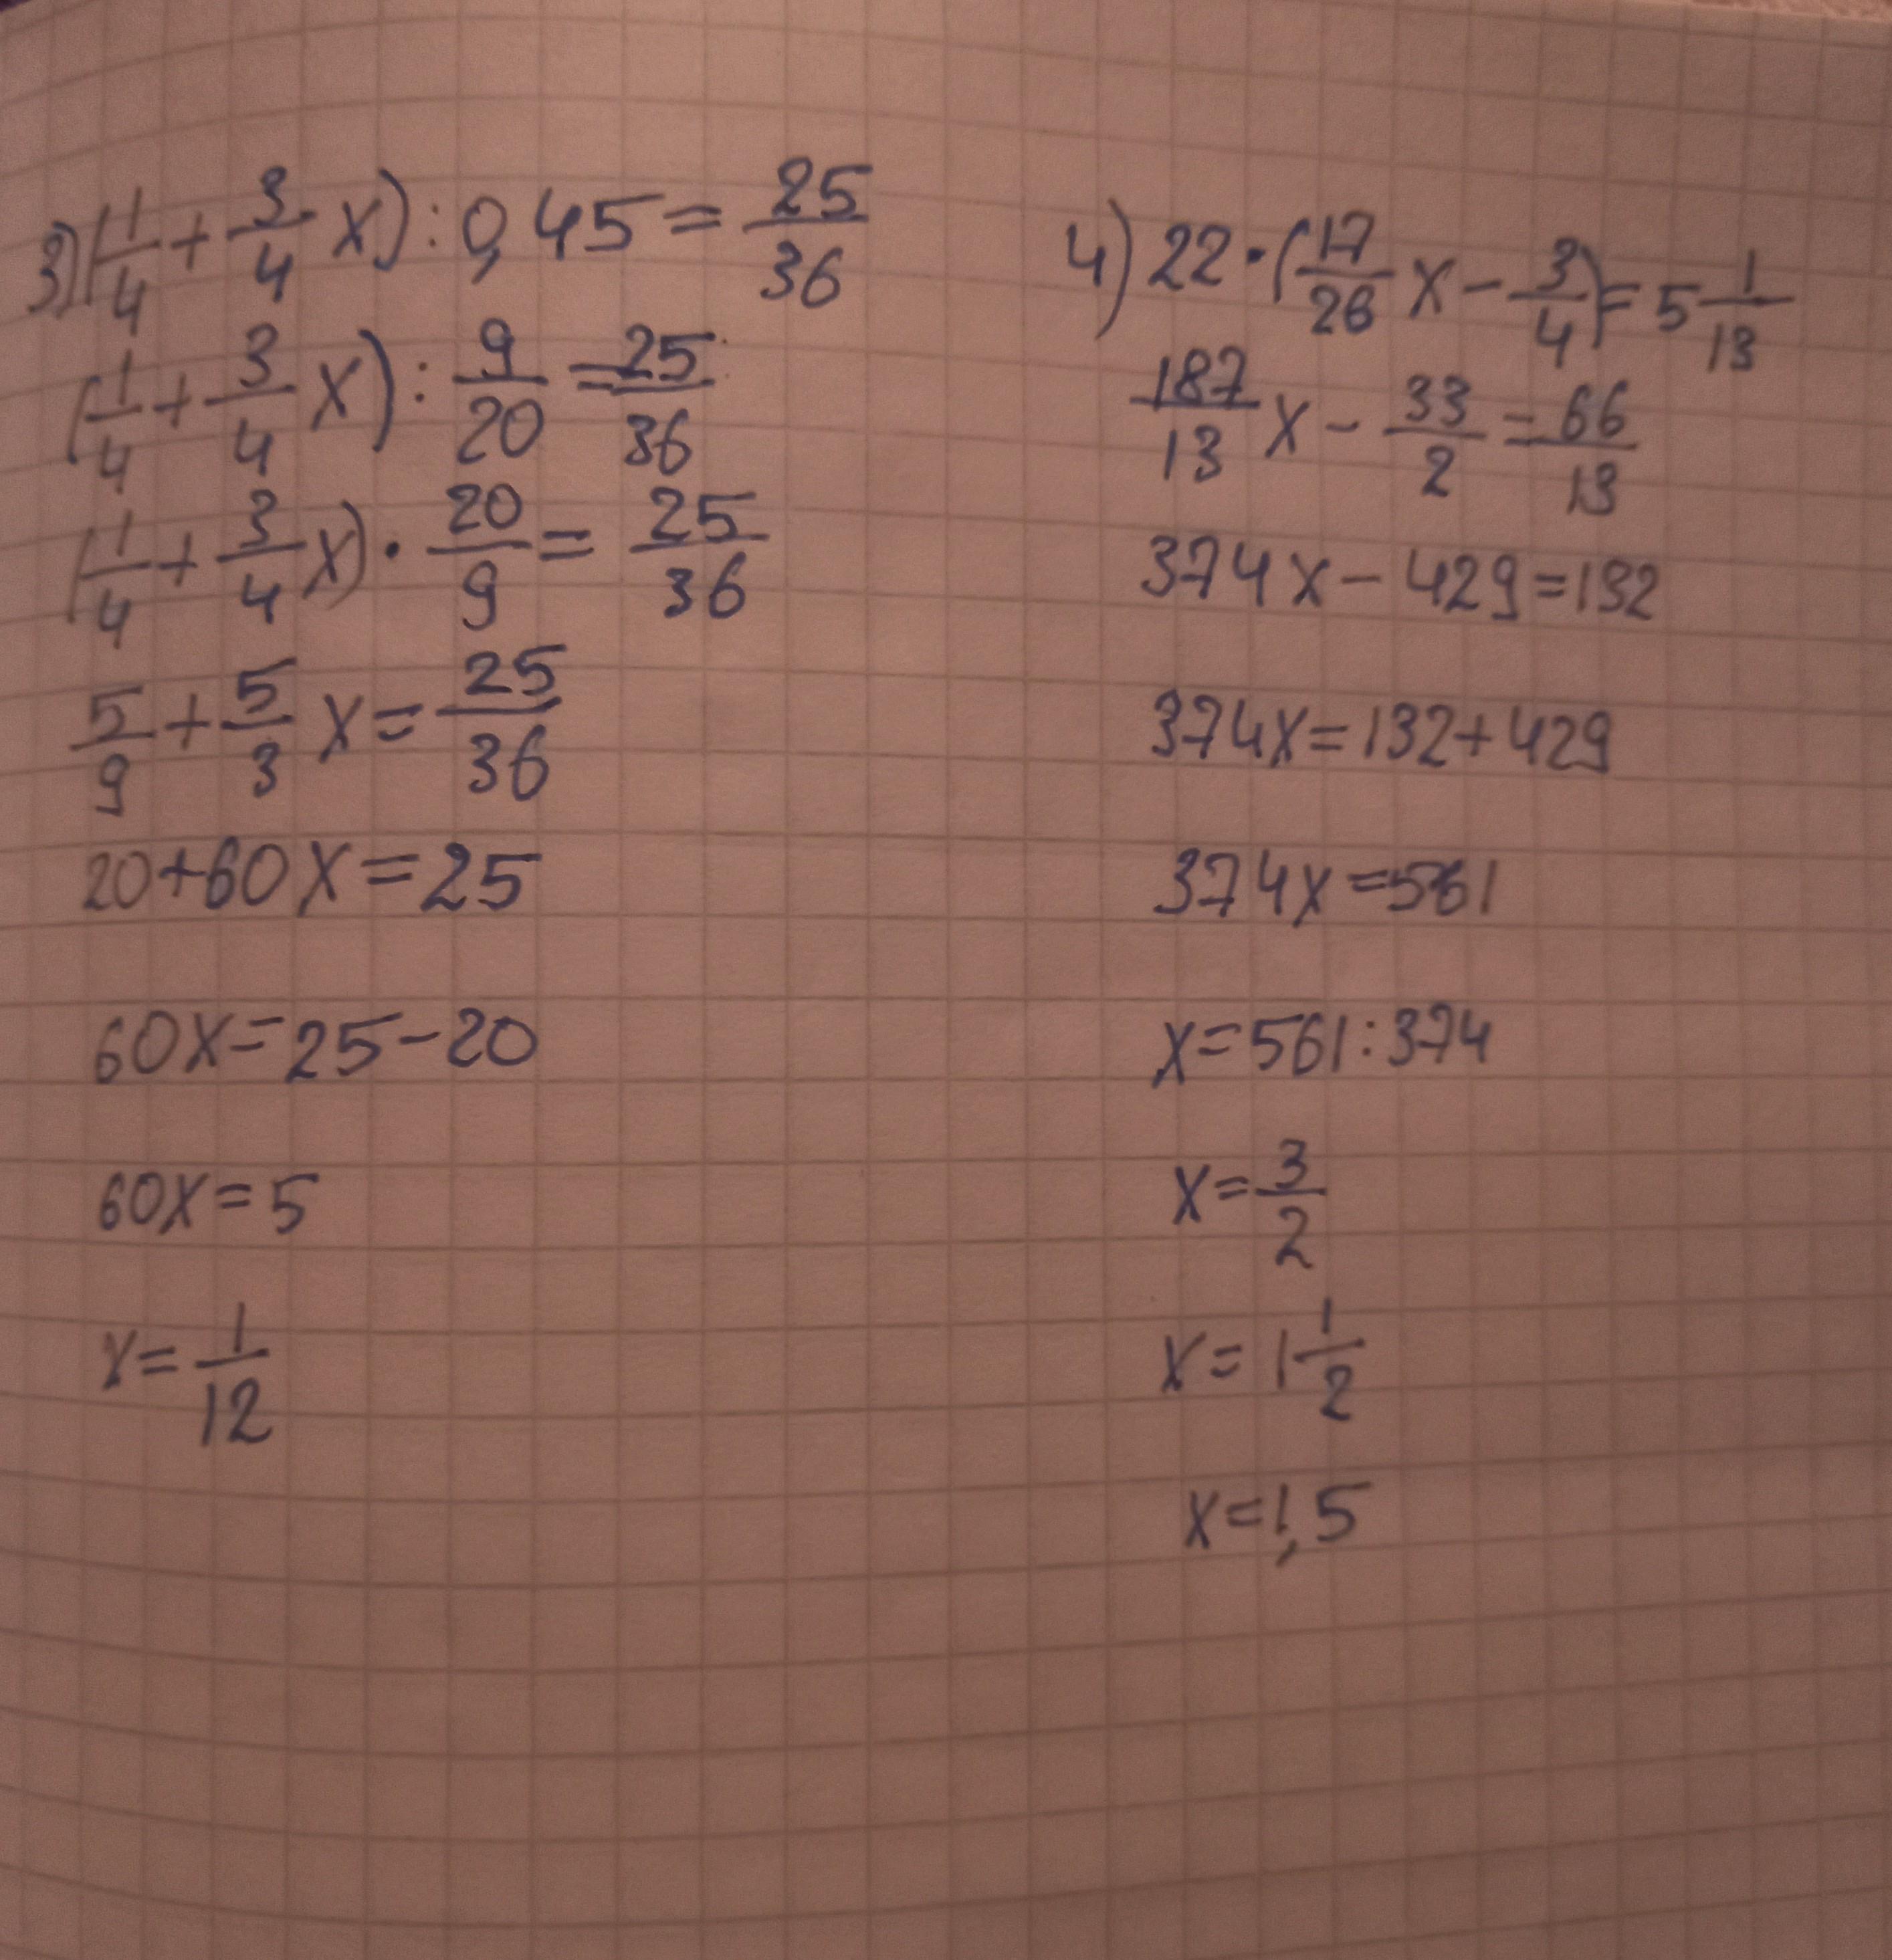 3) (1/4 + 3/4 x) : 0,45 = 25/36
(1/4 + 3/4 x) : 9/20 = 25/36
(1/4 + 3/4 x) · 20/9 = 25/36
5/9 + 5/3 x = 25/36
20+60x=25
60x=25-20
60x=5
x=1/12
4) 22·(17/26 x - 3/4) = 5 1/13
187/13 x - 33/2 = 66/13
374x-429=132
374x=132+429
374x=561
x=561:374
x=3/2
x=1 1/2
x=1,5